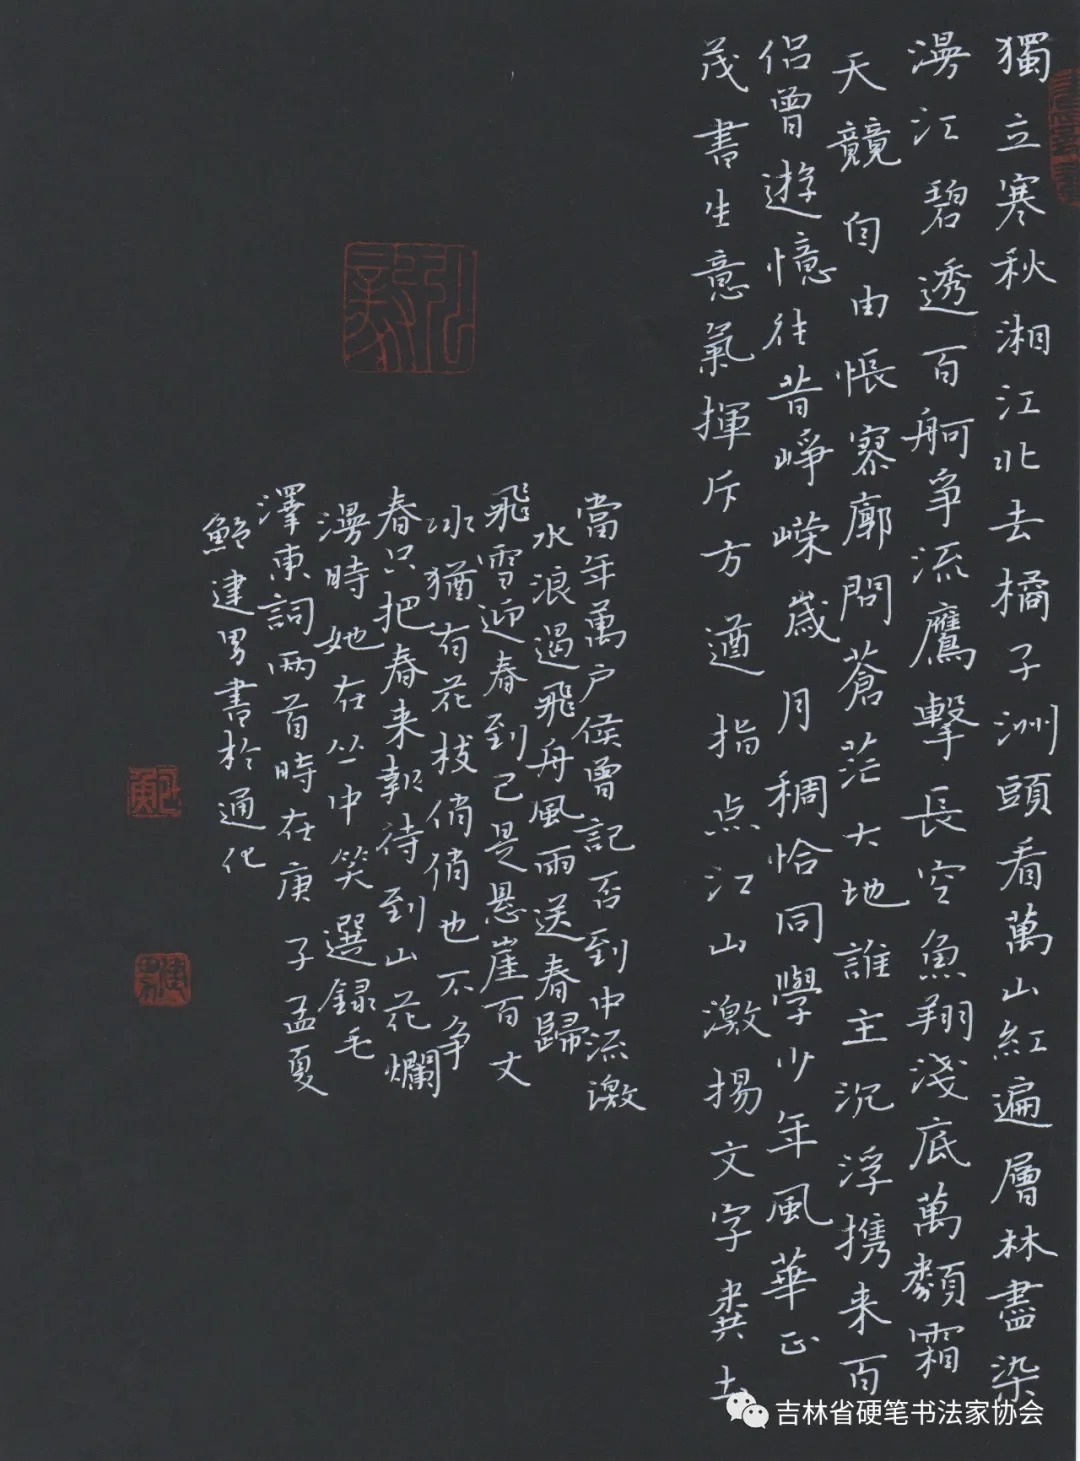 獨立寒秋湘江北去橘子洲頭看萬山紅遍層林盡染
漫江碧透百舸争流鷹擊長空魚翔淺底萬類霜
天競自由悵寥廓問蒼茫大地誰主沉浮携来百
侣曾遊憶往昔崢嶸歲月稠恰同學少年風華正
茂書生意氣揮斥方遒指点江山激揚文字糞土
當年萬户侯曾記否到中流激
水浪遏飛舟風雨送春歸
飛雪迎春到已是悬崖百丈
冰猶有花枝俏俏也不争
春只把春来報待到山花爛
漫時她在丛中笑選録毛
澤東詞两首時在庚子孟夏
鮑建男書於通化
吉林省硬笔书法家协会